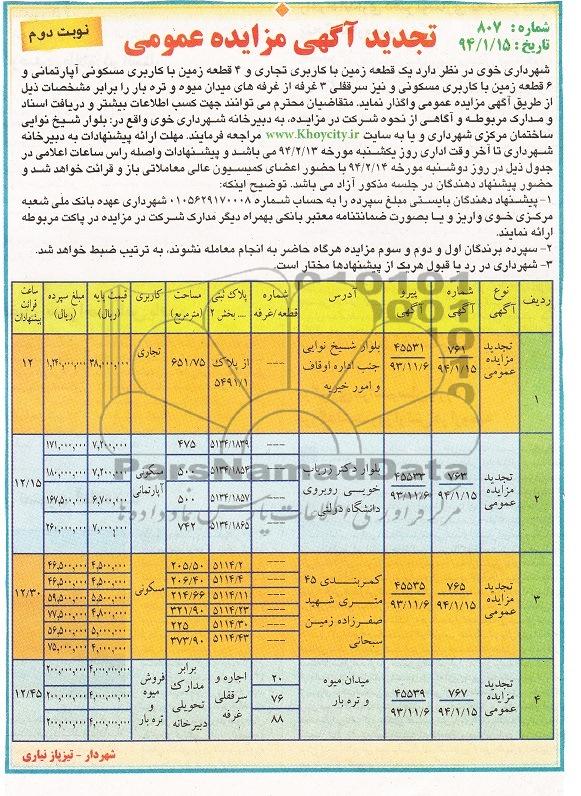 شماره: ۸۰۷
تاریخ: ۹۴/۱/۱۵
تجدید آگهی مزایده عمومی
نوبت دوم
شهرداری خوی در نظر دارد یک قطعه زمین با کاربری تجاری و ۴ قطعه زمین با کاربری مسکونی آپارتمانی و
۶ قطعه زمین با کاربری مسکونی و نیز سرقفلی ۳ غرفه از غرفه های میدان میوه و تره بار را برابر مشخصات ذیل
از طریق آگهی مزایده عمومی واگذار نماید. متقاضیان محترم می توانند جهت کسب اطلاعات بیشتر و دریافت اسناد
و مدارک مربوطه و آگاهی از نحوه شرکت در مزایده، به دبیرخانه شهرداری خوی واقع در: بلوار شیخ نوایی
ساختمان مرکزی شهرداری و یا به سایت www.Khoycity.ir مراجعه فرمایند. مهلت ارائه پیشنهادات به دبیرخانه
شهرداری تا آخر وقت اداری روز یکشنبه مورخه ۹۴/۲/۱۳ می باشد و پیشنهادات واصله راس ساعات اعلامی در
جدول ذیل در روز دوشنبه مورخه ۹۴/۲/۱۴ با حضور اعضای کمیسیون عالی معاملاتی باز و قرائت خواهد شد و
حضور پیشنهاد دهندگان در جلسه مذکور آزاد می باشد. توضیح اینکه:
۱- پیشنهاد دهندگان بایستی مبلغ سپرده را به حساب شماره ۰۱۰۵۶۲۹۱۷۰۰۰۸ شهرداری عهده بانک ملی شعبه
مرکزی خوی واریز و یا بصورت ضمانتنامه معتبر بانکی بهمراه دیگر مدارک شرکت در مزایده در پاکت مربوطه
ارائه نمایند.
۲- سپرده برندگان اول و دوم و سوم مزایده هرگاه حاضر به انجام معامله نشوند، به ترتیب ضبط خواهد شد.
۳- شهرداری در رد یا قبول هریک از پیشنهادها مختار است.
ردیف نوع آگهی شماره آگهی پیرو آگهی آدرس شماره قطعه/غرفه پلاک ثبتی .... بخش ۲ مساحت (مترمربع) کاربری قیمت پایه (ریال) مبلغ سپرده (ریال) ساعت قرائت پیشنهادات
۱ تجدید مزایده عمومی ۷۶۱ ۹۴/۱/۱۵ ۴۵۵۳۱ ۹۳/۱۱/۶ بلوار شیخ نوایی جنب اداره اوقاف و امور خیریه --- از پلاک ۵۴۹۱/۱ ۶۵۱/۷۵ تجاری ۳۸,۰۰۰,۰۰۰ ۱,۲۴۰,۰۰۰,۰۰۰ ۱۲
۲ تجدید مزایده عمومی ۷۶۳ ۹۴/۱/۱۵ ۴۵۵۳۳ ۹۳/۱۱/۶ بلوار دکتر زریاب خویی روبروی دانشگاه دولتی مسکونی آپارتمانی ۱۲/۱۵
--- ۵۱۳۴/۱۸۳۹ ۴۷۵ ۷,۲۰۰,۰۰۰ ۱۷۱,۰۰۰,۰۰۰
--- ۵۱۳۴/۱۸۵۴ ۵۰۰ ۷,۲۰۰,۰۰۰ ۱۸۰,۰۰۰,۰۰۰
--- ۵۱۳۴/۱۸۵۷ ۵۰۰ ۶,۷۰۰,۰۰۰ ۱۶۷,۵۰۰,۰۰۰
--- ۵۱۳۴/۱۸۶۵ ۷۴۲ ۷,۰۰۰,۰۰۰ ۲۶۰,۰۰۰,۰۰۰
۳ تجدید مزایده عمومی ۷۶۵ ۹۴/۱/۱۵ ۴۵۵۳۵ ۹۳/۱۱/۶ کمربندی ۴۵ متری شهید صفرزاده زمین سبحانی مسکونی ۱۲/۳۰
--- ۵۱۱۴/۲ ۲۰۵/۵۰ ۴,۵۰۰,۰۰۰ ۴۶,۵۰۰,۰۰۰
--- ۵۱۱۴/۴ ۲۰۶/۴۰ ۴,۵۰۰,۰۰۰ ۴۶,۵۰۰,۰۰۰
--- ۵۱۱۴/۱۱ ۲۱۴/۶۶ ۵,۵۰۰,۰۰۰ ۵۹,۵۰۰,۰۰۰
--- ۵۱۱۴/۲۳ ۳۲۱/۹۰ ۴,۸۰۰,۰۰۰ ۷۷,۵۰۰,۰۰۰
--- ۵۱۱۴/۳۰ ۲۲۵ ۵,۰۰۰,۰۰۰ ۵۶,۵۰۰,۰۰۰
--- ۵۱۱۴/۴۳ ۳۷۳/۹۰ ۴,۰۰۰,۰۰۰ ۷۵,۰۰۰,۰۰۰
۴ تجدید مزایده عمومی ۷۶۷ ۹۴/۱/۱۵ ۴۵۵۳۹ ۹۳/۱۱/۶ میدان میوه و تره بار اجاره و سرقفلی غرفه برابر مدارک تحویلی دبیرخانه فروش میوه و تره بار ۱۲/۴۵
۲۰ ۴,۰۰۰,۰۰۰ ۲۰۰,۰۰۰,۰۰۰
۷۶ ۴,۰۰۰,۰۰۰ ۲۰۰,۰۰۰,۰۰۰
۸۸ ۴,۰۰۰,۰۰۰ ۲۰۰,۰۰۰,۰۰۰
ParsNamadData
مرکز فرآوری اطلاعات پارس نماد داده ها
شهردار - تیزپاز نیاری